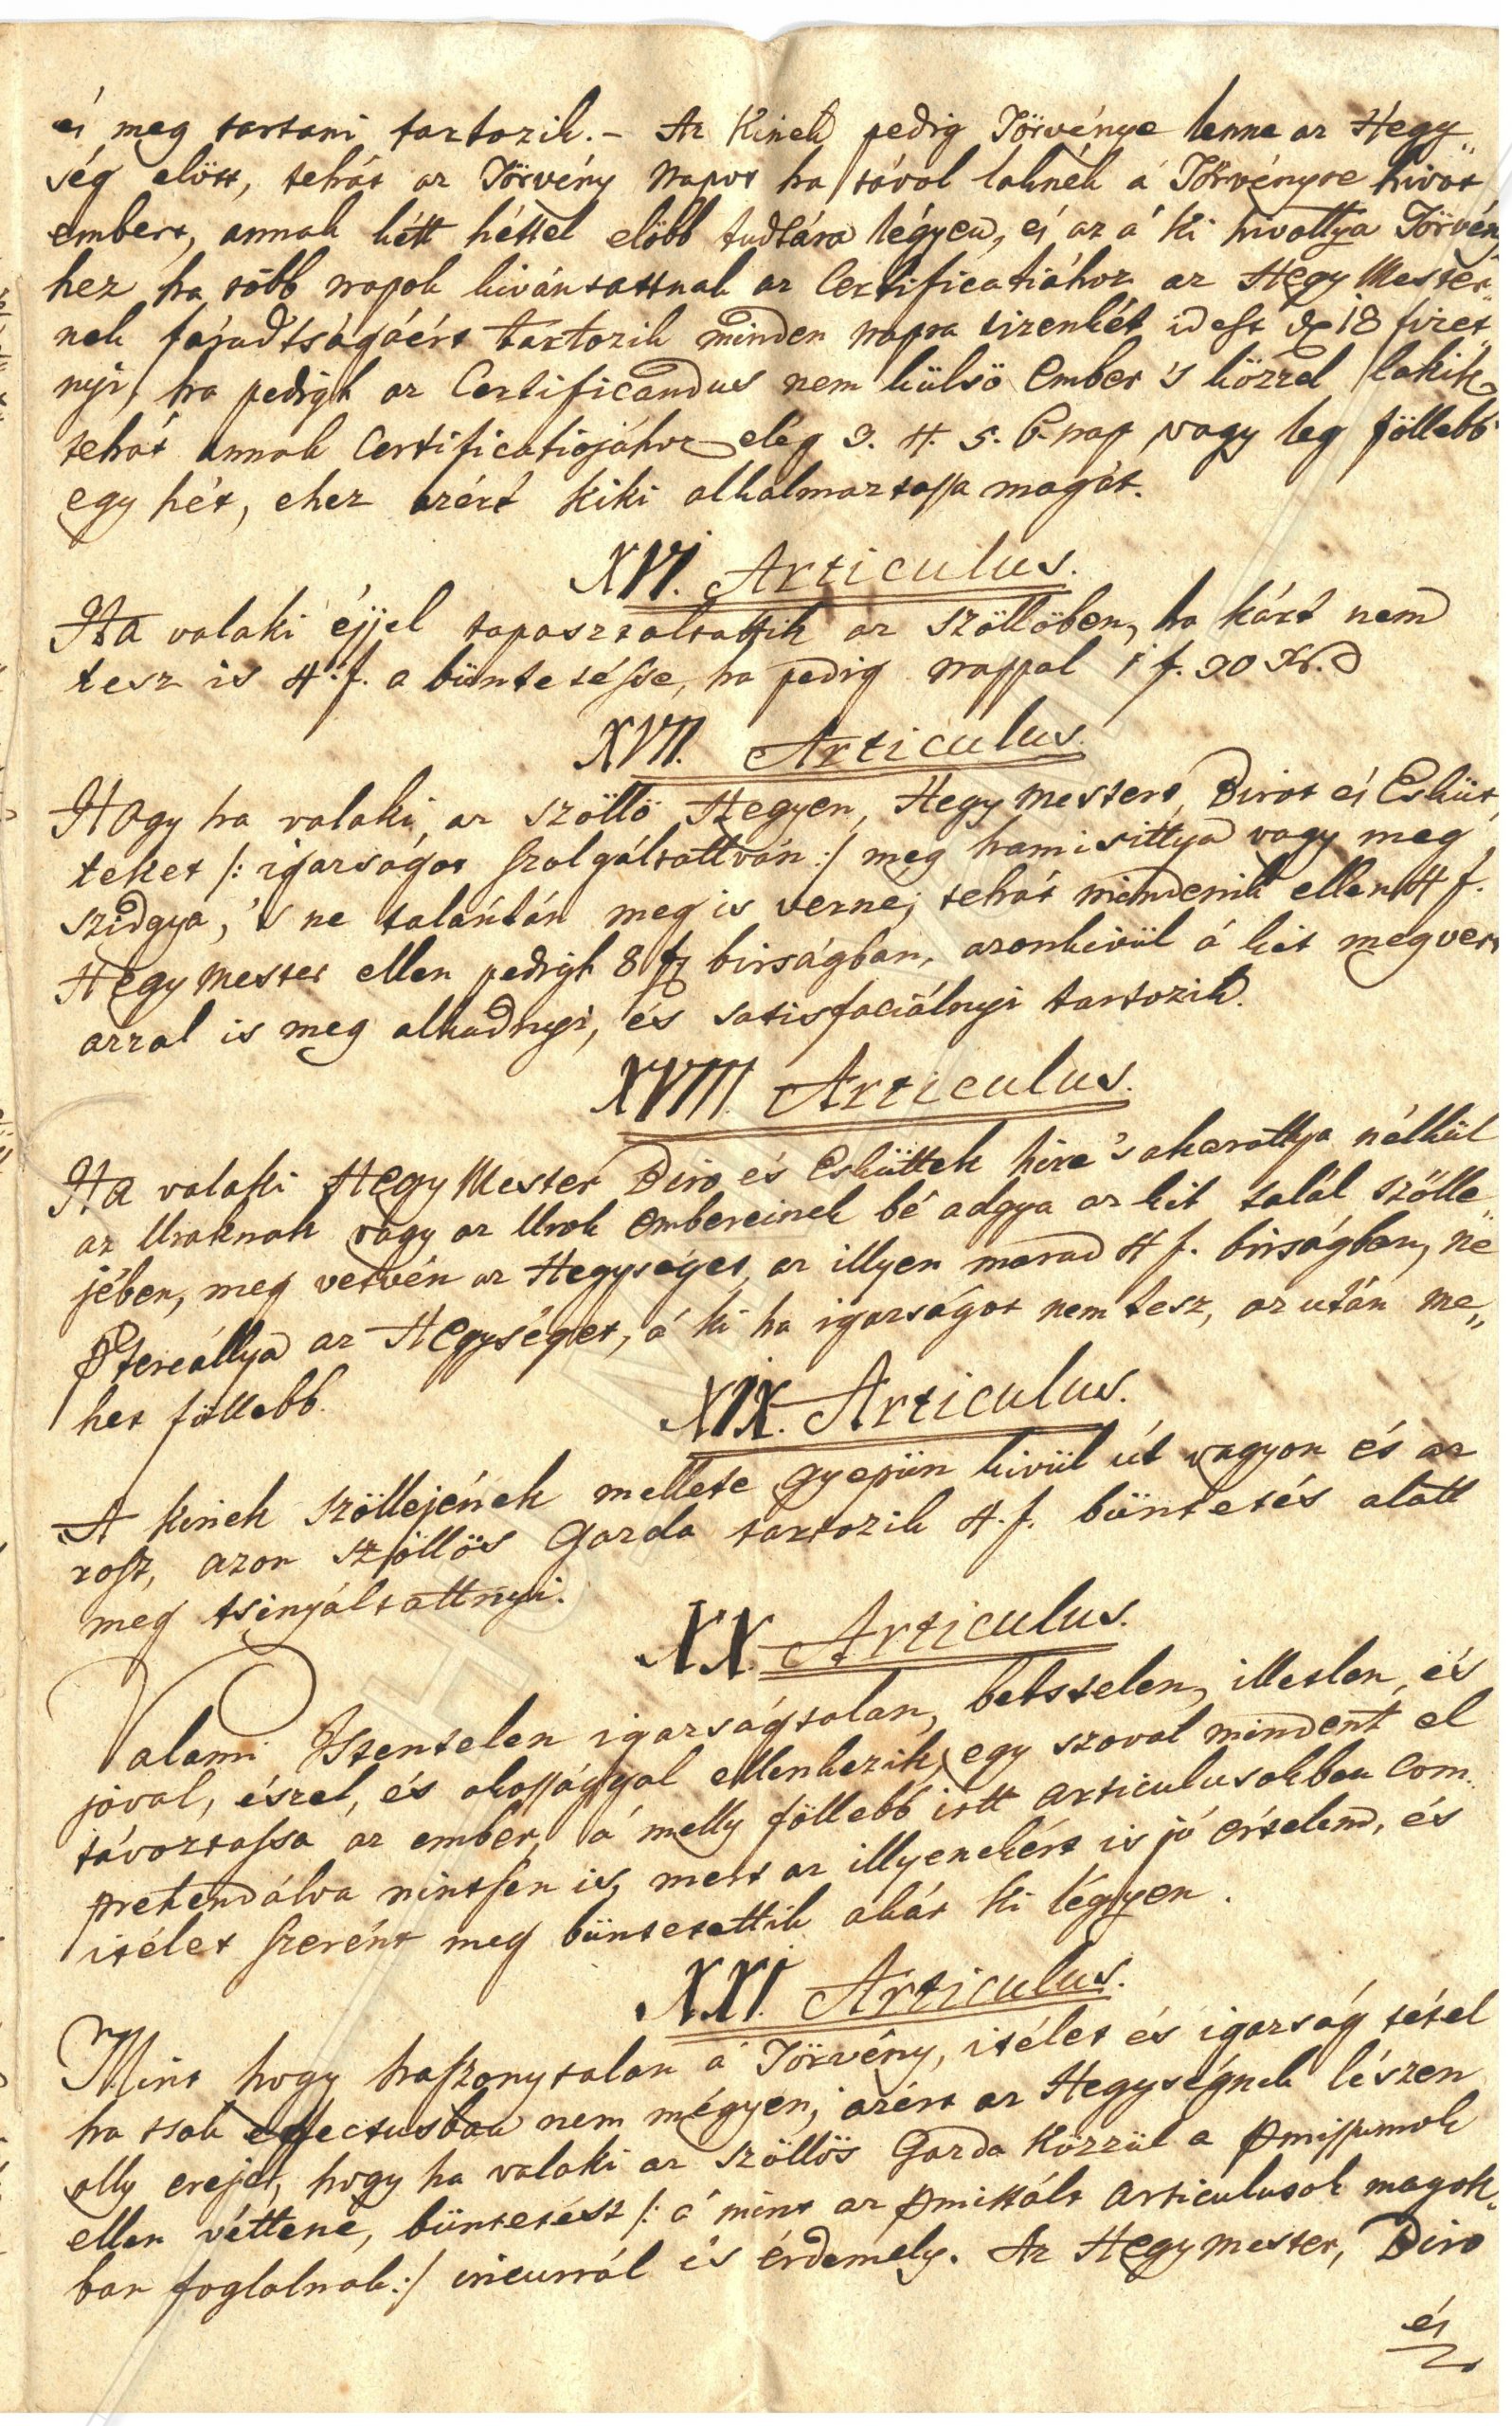 és meg tartani tartozik. – Az Kinek pedig Törvénye lenne az Hegy„
ség elött, tehát az Törvény napot ha távol laknék á Törvényre hivat
embert, annak hétt héttel elöbb tudtára légyen, és az á ki hivattya Törvén
hez ha több napok kivántattnak az Certificatiához az Hegy Mester„
nek fáradtságáért tartozik minden napra tizenkét id est d 18 fizet„
nyi, ha pedigh az Certificandus nem külsö Ember 's közzel lakik
tehát annak Certificatiojához elég 3. 4. 5. 6. nap vagy leg föllebb
egy hét, ehez azért kiki alkalmaztassa magát.
XVI. Articulus.
Ha valaki éjjel tapasztaltattik az Szöllöben, ha kárt nem
tesz is 4. f. a büntetésse, ha pedig nappal 1 f. 30 Xr.
XVII. Articulus.
Hogy ha valaki az Szöllö Hegyen, Hegy Mestert, Birot és Esküt
teket /: igazságot szolgáltattván :/ meg hamisittya vagy meg
szidgya, 's ne talántán meg is verne, tehát mindenik ellen 4 f.
Hegy Mester ellen pedigh 8 f birságban, azonkivül á kit megvert
azzal is meg alkudnyi, és satisfaciálnyi tartozik.
XVIII. Articulus.
Ha valaki Hegy Mester Biro és Esküttek hire 's akarattya nélkül
az Uraknak vagy az Urok Embereinek bé adgya az kit talál Szölle„
jében, meg vetvén az Hegységet, az illyen marad 4 f. birságban, ne
az Hegységet, á ki ha igazságot nem tesz, az után me„
het föllebb.
XIX. Articulus.
A kinek Szöllejének mellete gyepün kivül út vagyon és az
rosz, azon szöllös Gazda tartozik 4. f. büntetés alatt
meg tsinyáltattnyi.
XX. Articulus.
Valami Istentelen igazságtalan, betstelen, illetlen, és
jóval, észel, és okossággal ellenkezik, egy szoval mindent el
távoztassa az ember, á melly föllebb irtt articulusokban com„
prehendálva nintsen is, mert az illyenekért is jó értelend, és
itélet szerént meg büntetettik akár ki légyen.
XXI. Articulus.
Mint hogy haszonytalan á Törvény, itélet és igazság tétel
ha tsak effectusban nem mégyen, azért az Hegységnek lészen
olly erejet, hogy ha valaki az Szöllös Gazda közzül a pmissumok
ellen véttene, büntetést /: á mint az pmittált Articulusok magok„
ban foglalnak :/ incurrál és érdemely. Az Hegymester, Biro
és